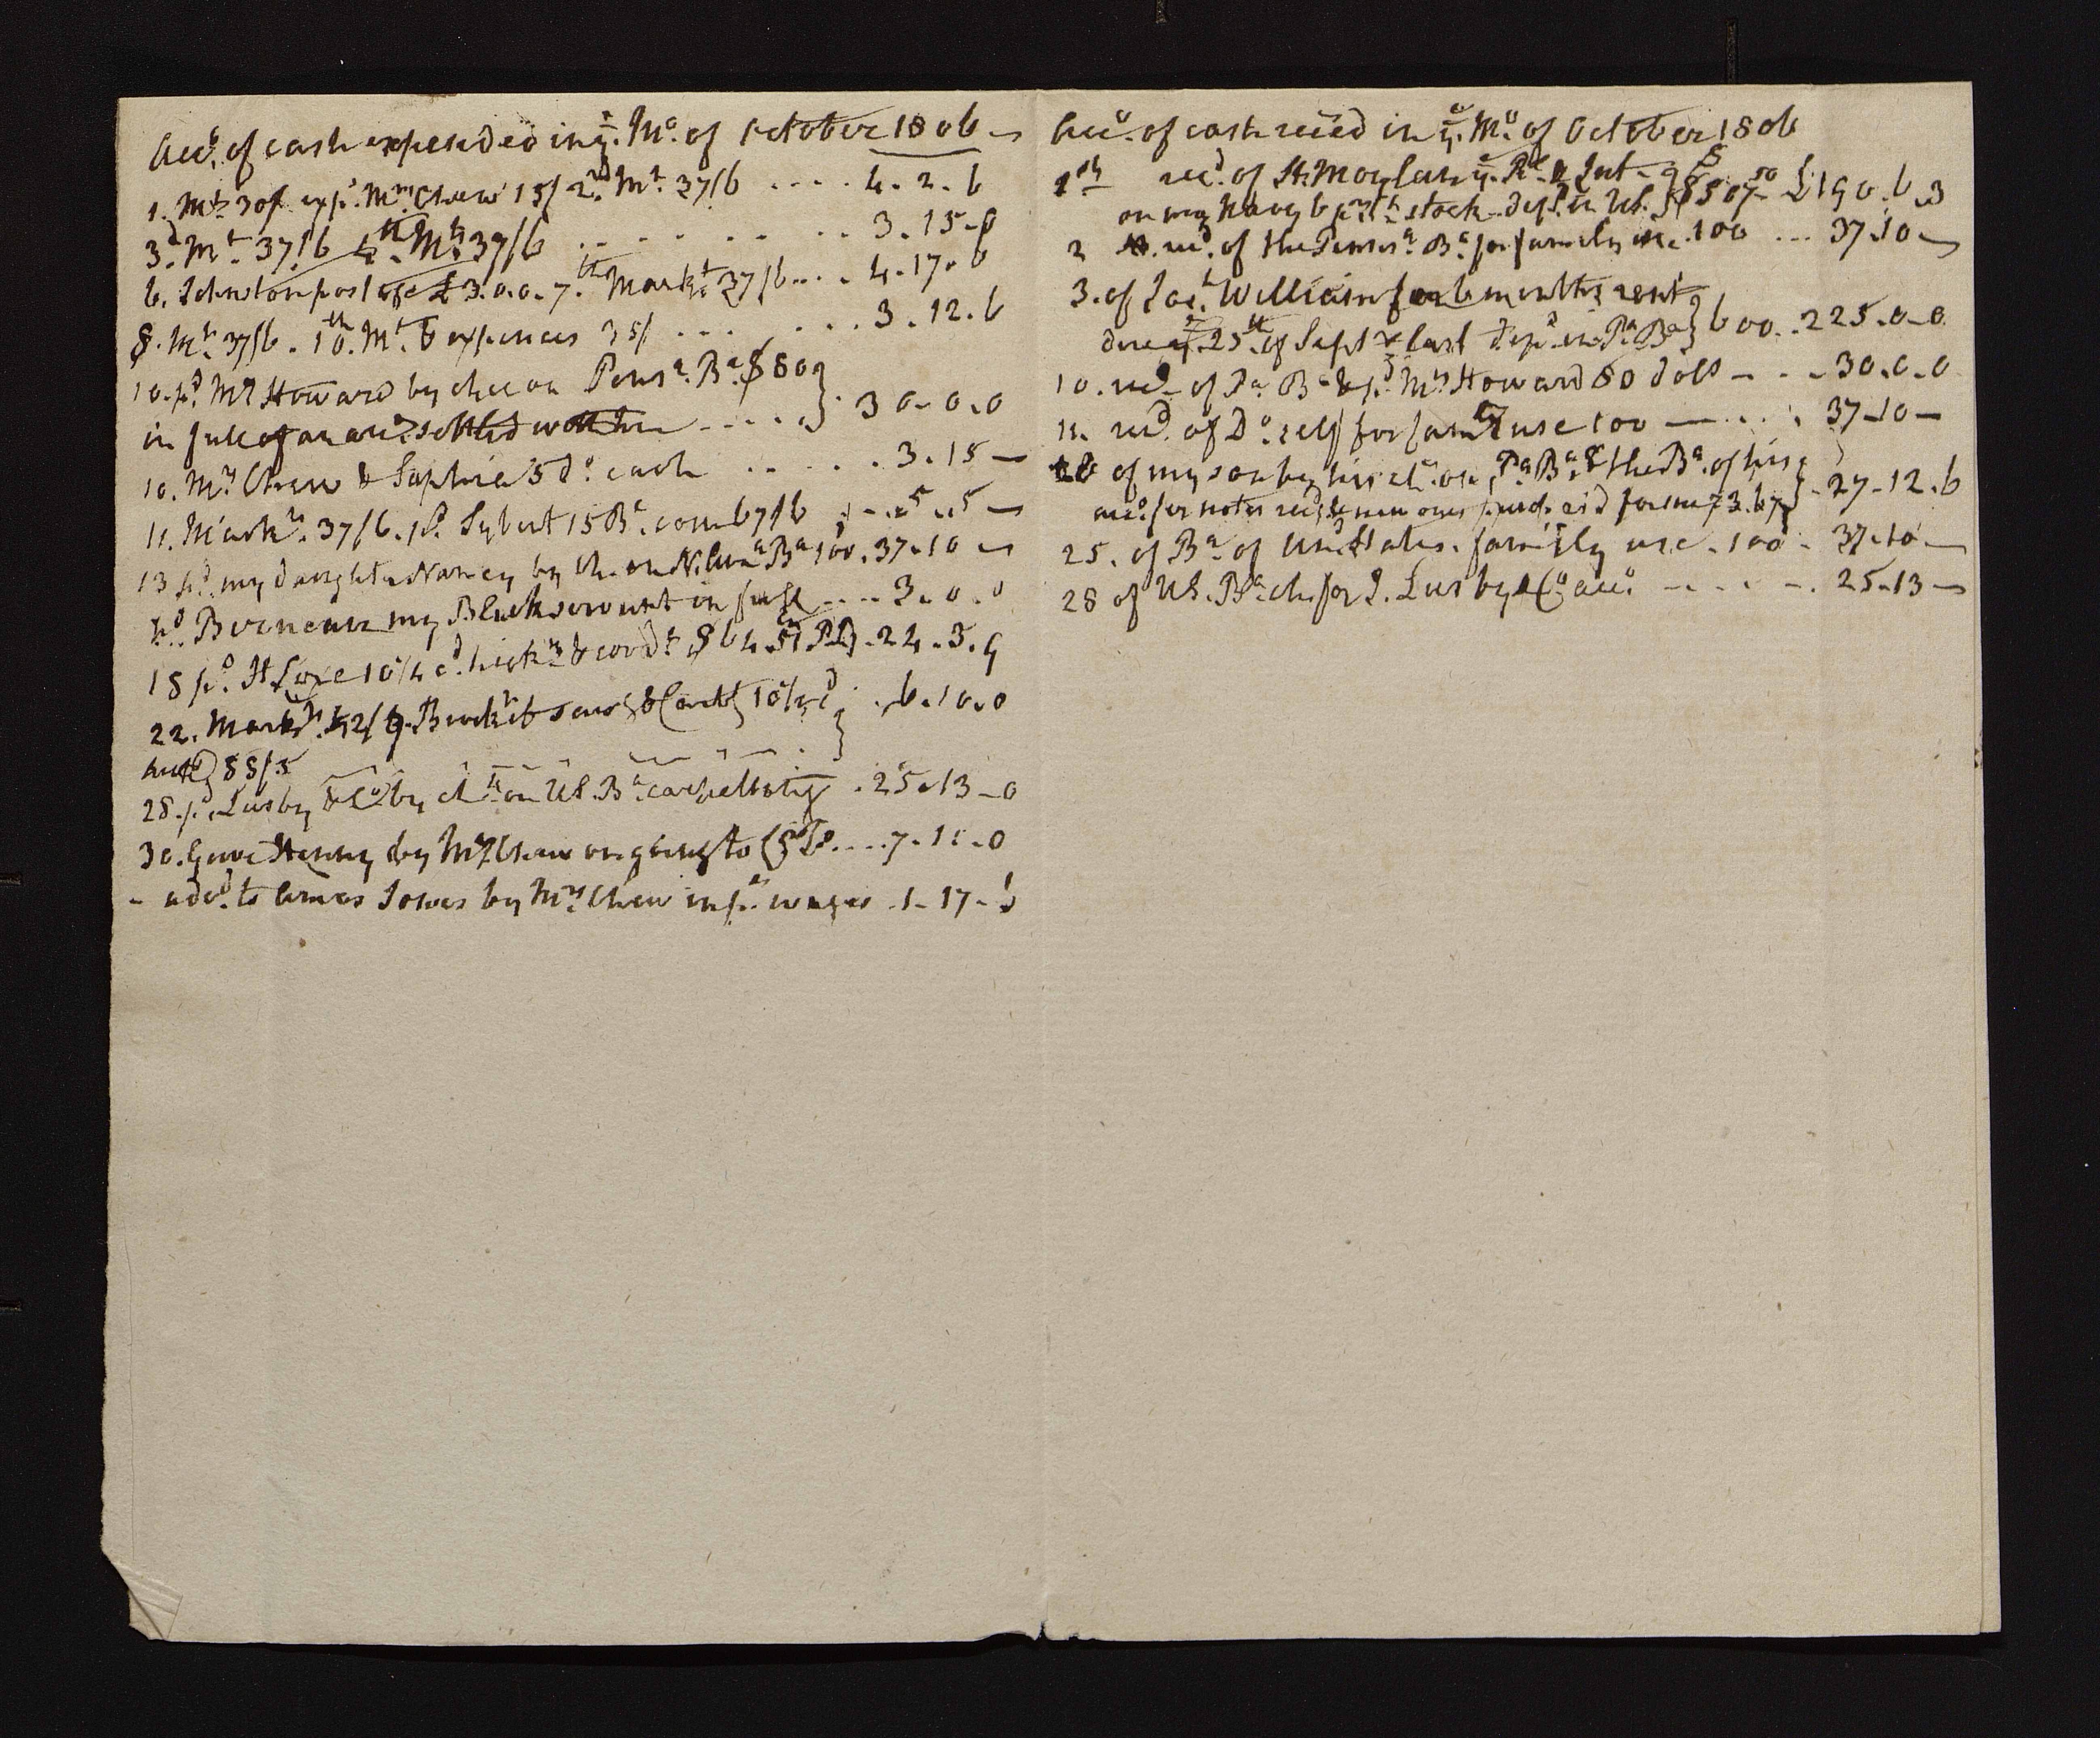 Acct. of cash expended in ye. Mo. of October 1806
1. Mkt 30/ exps. Mrs Chew 15/ 2nd Mt. 37/6 .... 4. 2. 6
3d. Mt. 37/6 4th Mt. 37/6 .. . . . . .. 3. 15. 0
6. Johnston postage £3.0.0. 7th Markt. 37/6 ... 4. 17. 6
8. Mt. 37/6. 10th. Mt. & expences 35/ ... ... 3. 12. 6
10. pd. Mrs Howard by che. on Pensa. Ba. $80
in full of an acct. settled with him .... } 30. 0. 0
10. Mrs Chew & Sophia 5 do. each ..... 3. 15 —
11. Markt. 37/6. pd. Sybert 15 Bs. corn 67/6 . . . 5. 5 —
13 pd. my daughter Nancy by ch. on N. Ama Ba 100. 37. 10 —
pd. my Black servant in full .... 3. 0. 0
18 pd. 10 1/4 cd. hicky & cordg $64.50 PB. 24. 3. 9
22. Markt. 42/9. Buckt & Carte 10/
88/3 } . 6. 10. 0
28. pd. Lusby & Co by ch. on US. Ba . 25. 13 - 0
30. Gave Henny by Mrs Chew on going to .... 7. 10. 0
- add. to Jones by Mrs Chew in pt. wages . 1. 17. 6
Acct. of cash recd in ye. Mo. of October 1806
1st recd. of H. Moylan ye. Pl. & Int.
on my Navy 6 per Ct. stock dep. in US. B } $507.50 £190. 6. 3
2 recd. of the Pensa. Ba. for family use. 100 ... 37. 10 —
3. of Jos. William for 6 months rent
due ye. 25th of Septr last dep. in Pa. Ba } 600 .. 225. 0. 0
10. recd. of Pa. Ba & pd. Mrs Howard 80 dolls - - - 30. 0. 0
11. recd. of Do. self for family use 100 — ... 37. 10 —
of my son by his ch. on Pa. Ba. & the Ba. of his
acct. for notes recd & new ones for me 73.67 } . 27. 12. 6
25. of Ba. of Und. States. family use. 100 - 37. 10 —
28 of US. Ba. ch. for J. Lusby & Co. acct. - - - - 25. 13 —